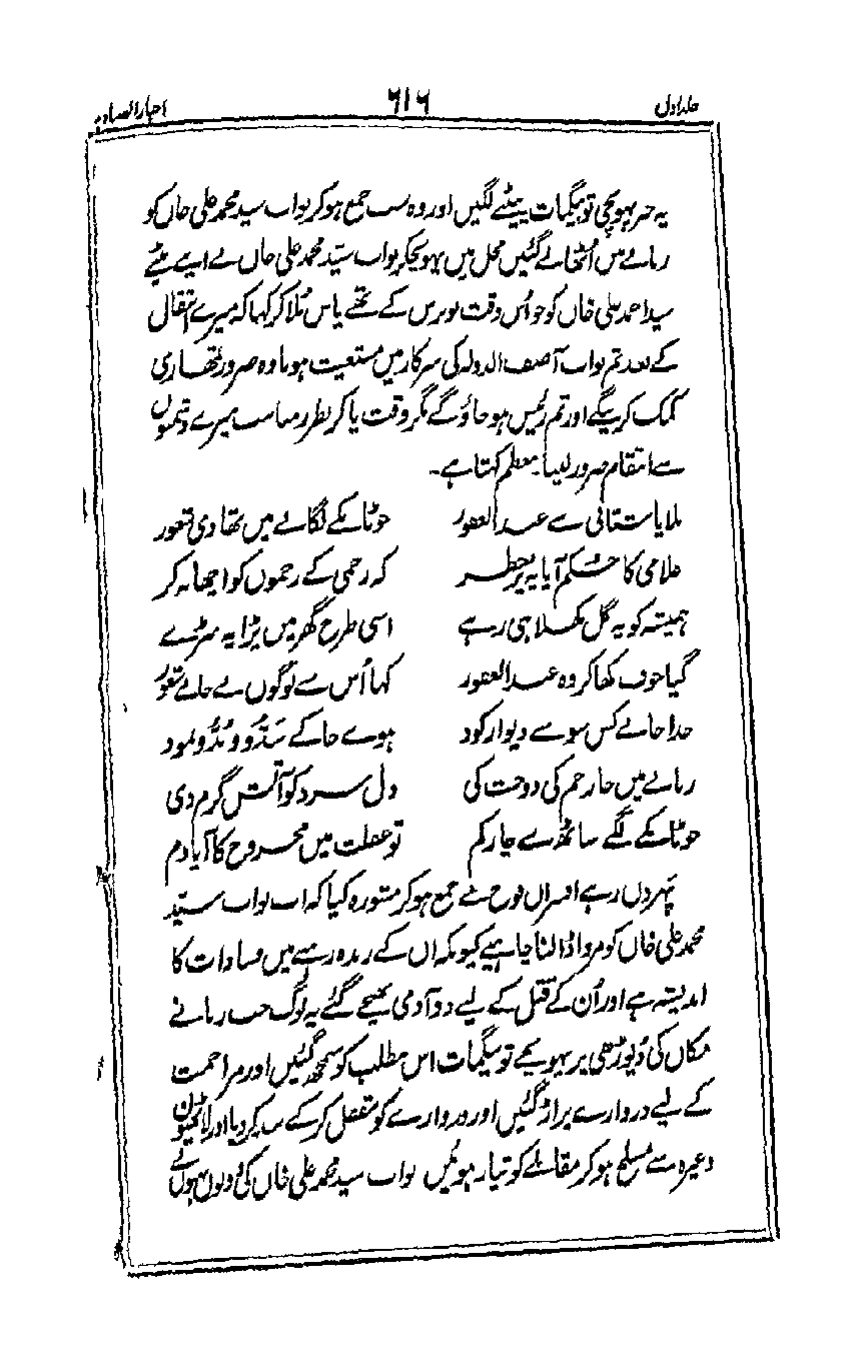 جلد اول ۶۱۶ اخبار الصنادید
یہ خبر پہونچی تو بیگمات پیٹنے لگیں اور وہ سب جمع ہو کر نواب سید محمد علی خاں کو
زنانے میں اُٹھا لے گئیں محل میں پہونچکر نواب سیّد محمد علی خاں نے اپنے بیٹے
سید احمد علی خاں کو جو اُس وقت نو برس کے تھے پاس بُلا کر کہا کہ میرے انتقال
کے بعد تم نواب آصف الدولہ کی سرکار میں مستغیث ہونا وہ ضرور تمھاری
کمک کرینگے اور تم رئیس ہو جاؤ گے مگر وقت پا کر بنظر مناسب میرے دشمنوں
سے انتقام ضرور لینا۔ معظم کہتا ہے۔
ملا باستانی سے عبد الغفور جو ٹانکے لگانے میں تھا ذی شعور
غلامی کا حکم آیا یہ پر خطر کہ زخمی کے زخموں کو اچھا نہ کر
ہمیشہ کو یہ گل کھلا ہی رہے اسی طرح گھر میں پڑا یہ سڑے
گیا خوف کھا کر وہ عبد الغفور کہا اُس سے لوگوں نے جانے
خدا جانے کس سوے دیوار کود ہوے جا کے
زمانے میں جا رحم کی دوخت کی دل سرد کو آتش گرم دی
جو ٹانکے لگے ساٹھ سے چار کم تو غفلت میں مجروح کا آیا دم
پہر دن رہے افسران فوج نے جمع ہو کر مشورہ کیا کہ اب نواب سیّد
محمد علی خاں کو مروا ڈالنا چاہیے کیونکہ اُن کے زندہ رہنے میں فسادات کا
اندیشہ ہے اور اُن کے قتل کے لیے دو آدمی بھیجے گئے یہ لوگ جب زنانے
مکاں کی ڈیوڑھی پر پہونچے تو بیگمات اس مطلب کو سمجھ گئیں اور مزاحمت
کے لیے دروازے پر اڑ گئیں اور دروازے کو مقفل کر کے بند کر دیا اور لاٹھیوں
وغیرہ سے مسلح ہو کر مقابلے کو تیار ہوئیں نواب سید محمد علی خاں کی دونوں بہنوں نے